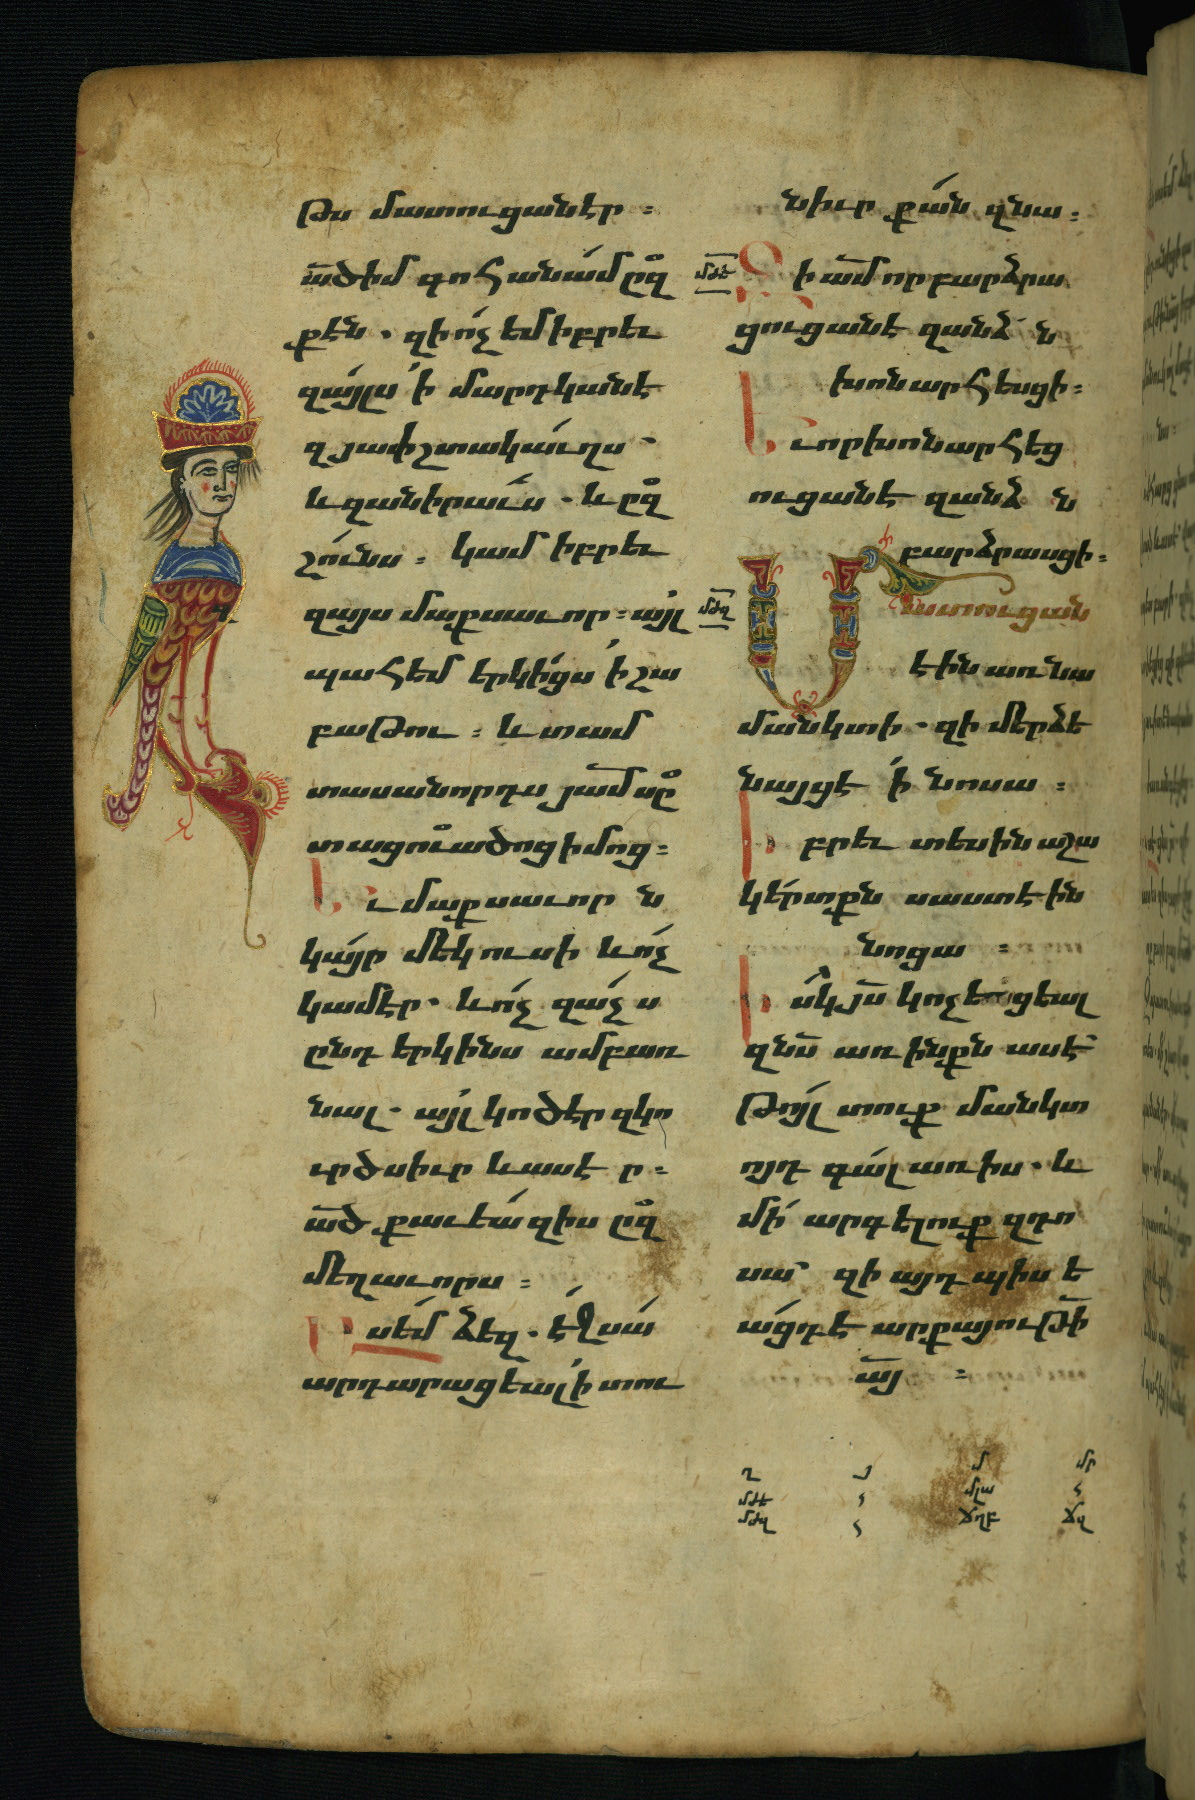 թս մատուցանէր ։
ած իմ գոհանամ ըզ
քէն . զի ոչ եմ իբրեւ
զայլս ի մարդկանէ
զյափշտակաւղս .
և զանիրաւս . և ըզ
շունս ։ կամ իբրեւ
զայս մաքսաւոր ։ այլ
պահեմ երկիցս ի շա
բաթու ։ և տամ
տասանորդս յամ սը
տացուածոց իմոց ։
Եւ մաքսաւոր ն
կայր մեկուսի և ոչ
կամէր . և ոչ զաչս
ընդ երկինս ամբառ
նալ . այլ կոծէր զկո
ւրծսիւր և ասէ ր ։
ած քաւեա զիս ըզ
մեղաւորս ։
Ասեմ ձեզ . էջ սա
արդարացեալ ի տու
նիւր քան զնա ։
մժե
Զի ամ որ բարձրա
ցուցանէ զանձ ն
խոնարհեսցի ։
Եւ որ խոնարհեց
ուցանէ զանձ ն
բարձրասցի ։
մժզ
Մատուցան
էին առ նա
մանկտի . զի մերձե
նայցէ ի նոսա ։
Իբրեւ տեսին աշա
կերտքն սաստէին
նոցա ։
Իսկ յս կոչեցեալ
զնս առ ինքն ասէ
Թոյլ տուք մանկտ
ոյդ գալ առ իս . և
մի արգելուք զդո
սա զի այդպիսե
ացդ է արքայութի
այ ։
ղ մ մր
մժե մլա
մժզ ճղբ ճզ